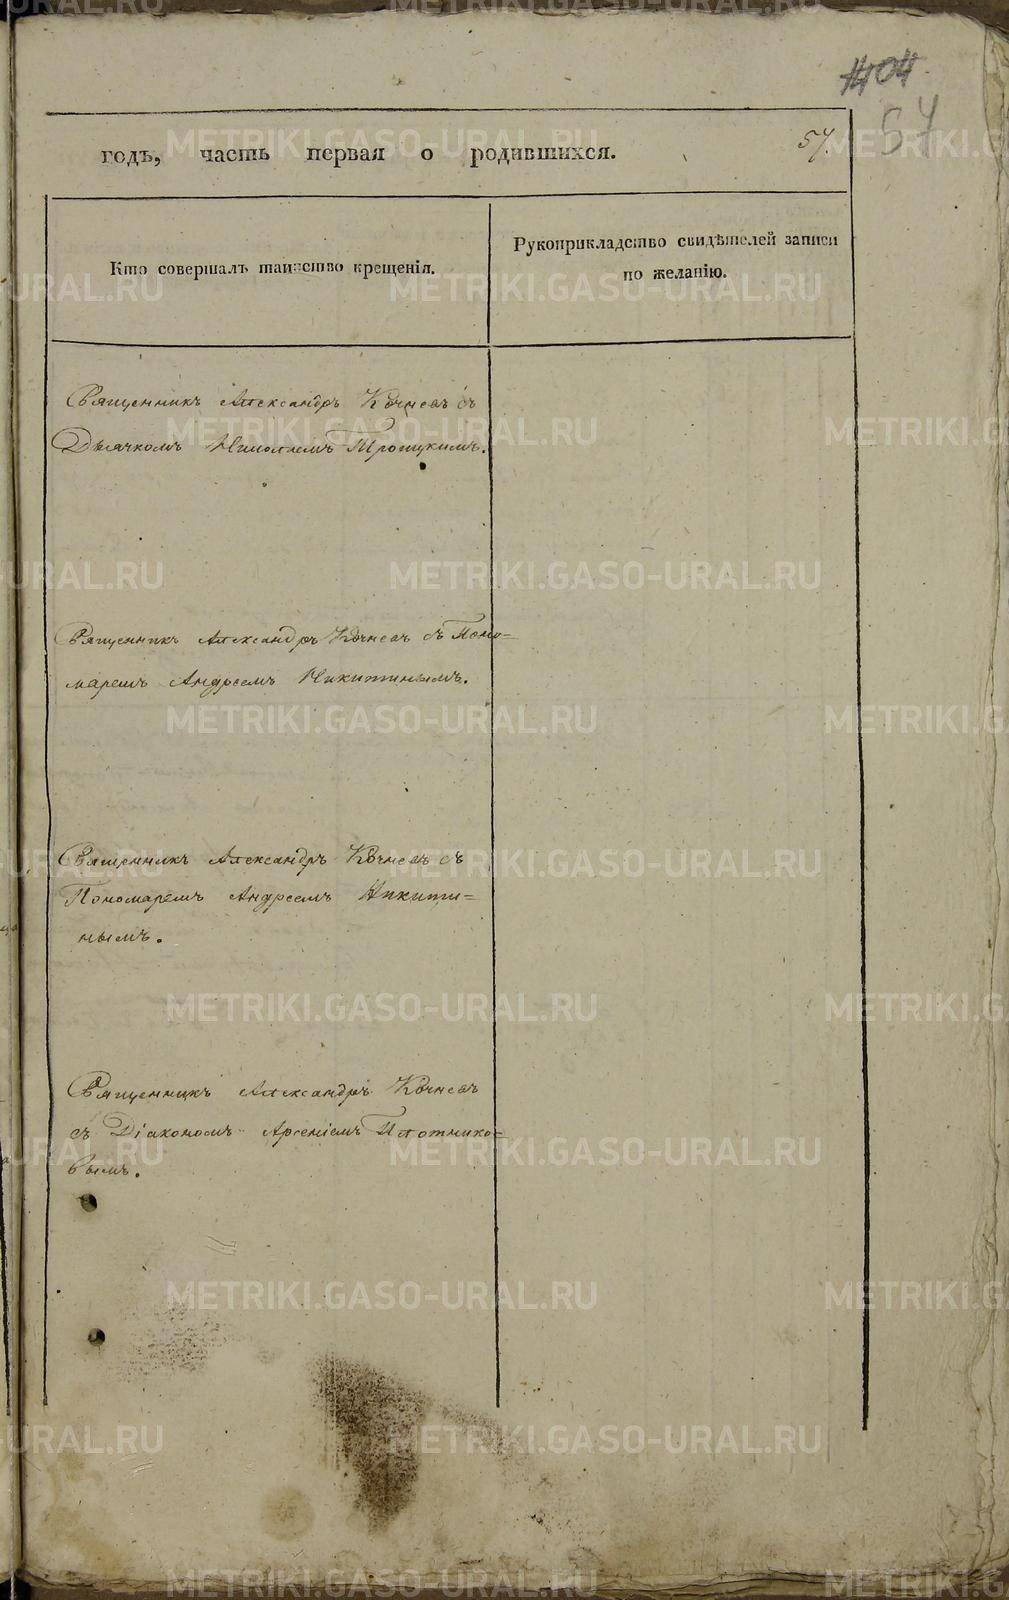 404
57
годъ, часть первая о родившихся. 57.
Кто совершалъ таинство крещенія.
Рукоприкладство свидѣтелей записи
по желанію.
Священникъ Александръ Кочневъ съ
Дьячкомъ Николаемъ Троицкимъ.
Священникъ Александръ Кочневъ съ Поно=
маремъ Андреемъ Никитинымъ.
Священникъ Александръ Кочневъ съ
Пономаремъ Андреемъ Никити=
нымъ.
Священникъ Александръ Кочневъ
съ Діакономъ Арсеніемъ Плотнико=
вымъ.
METRIKI.GASO-URAL.RU